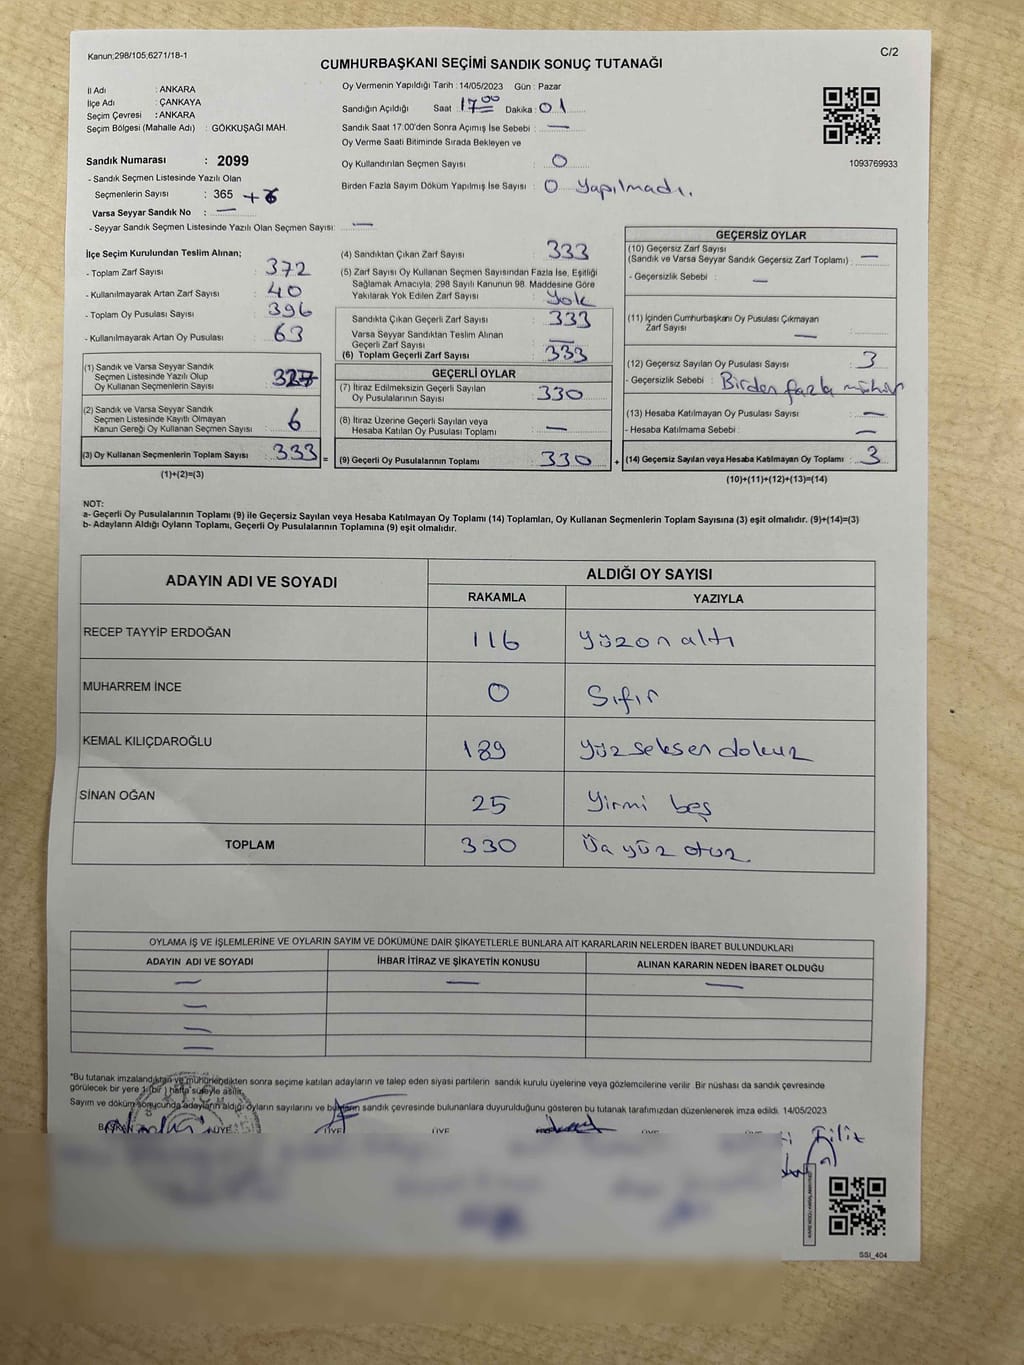 Kanun;298/105;6271/18-1
C/2
CUMHURBAŞKANI SEÇİMİ SANDIK SONUÇ TUTANAĞI
İl Adı : ANKARA
İlçe Adı : ÇANKAYA
Seçim Çevresi : ANKARA
Seçim Bölgesi (Mahalle Adı) : GÖKKUŞAĞI MAH.
Oy Vermenin Yapıldığı Tarih : 14/05/2023 Gün : Pazar
Sandığın Açıldığı Saat : 17 00 Dakika : 01
Sandık Saat 17:00'den Sonra Açımış İse Sebebi : —
Oy Verme Saati Bitiminde Sırada Bekleyen ve
Oy Kullandırılan Seçmen Sayısı : 0
Birden Fazla Sayım Döküm Yapılmış İse Sayısı : 0 Yapılmadı.
1093769933
Sandık Numarası : 2099
- Sandık Seçmen Listesinde Yazılı Olan
Seçmenlerin Sayısı : 365 +6
Varsa Seyyar Sandık No : —
- Seyyar Sandık Seçmen Listesinde Yazılı Olan Seçmen Sayısı: —
İlçe Seçim Kurulundan Teslim Alınan;
- Toplam Zarf Sayısı : 372
- Kullanılmayarak Artan Zarf Sayısı : 40
- Toplam Oy Pusulası Sayısı : 396
- Kullanılmayarak Artan Oy Pusulası : 63
(1) Sandık ve Varsa Seyyar Sandık
Seçmen Listesinde Yazılı Olup
Oy Kullanan Seçmenlerin Sayısı : 327
(2) Sandık ve Varsa Seyyar Sandık
Seçmen Listesinde Kayıtlı Olmayan
Kanun Gereği Oy Kullanan Seçmen Sayısı : 6
(3) Oy Kullanan Seçmenlerin Toplam Sayısı : 333 =
(1)+(2)=(3)
(4) Sandıktan Çıkan Zarf Sayısı : 333
(5) Zarf Sayısı Oy Kullanan Seçmen Sayısından Fazla İse, Eşitliği
Sağlamak Amacıyla; 298 Sayılı Kanunun 98. Maddesine Göre
Yakılarak Yok Edilen Zarf Sayısı : Yok
Sandıkta Çıkan Geçerli Zarf Sayısı : 333
Varsa Seyyar Sandıktan Teslim Alınan
Geçerli Zarf Sayısı : —
(6) Toplam Geçerli Zarf Sayısı : 333
GEÇERLİ OYLAR
(7) İtiraz Edilmeksizin Geçerli Sayılan
Oy Pusulalarının Sayısı : 330
(8) İtiraz Üzerine Geçerli Sayılan veya
Hesaba Katılan Oy Pusulası Toplamı : —
(9) Geçerli Oy Pusulalarının Toplamı : 330 +
GEÇERSİZ OYLAR
(10) Geçersiz Zarf Sayısı
(Sandık ve Varsa Seyyar Sandık Geçersiz Zarf Toplamı) : —
- Geçersizlik Sebebi : —
(11) İçinden Cumhurbaşkanı Oy Pusulası Çıkmayan
Zarf Sayısı : —
(12) Geçersiz Sayılan Oy Pusulası Sayısı : 3
- Geçersizlik Sebebi : Birden fazla mühür
(13) Hesaba Katılmayan Oy Pusulası Sayısı : —
- Hesaba Katılmama Sebebi : —
(14) Geçersiz Sayılan veya Hesaba Katılmayan Oy Toplamı : 3
(10)+(11)+(12)+(13)=(14)
NOT:
a- Geçerli Oy Pusulalarının Toplamı (9) ile Geçersiz Sayılan veya Hesaba Katılmayan Oy Toplamı (14) Toplamları, Oy Kullanan Seçmenlerin Toplam Sayısına (3) eşit olmalıdır. (9)+(14)=(3)
b- Adayların Aldığı Oyların Toplamı, Geçerli Oy Pusulalarının Toplamına (9) eşit olmalıdır.
ADAYIN ADI VE SOYADI ALDIĞI OY SAYISI
RAKAMLA YAZIYLA
RECEP TAYYİP ERDOĞAN 116 Yüzon altı
MUHARREM İNCE 0 Sıfır
KEMAL KILIÇDAROĞLU 189 Yüz seksen dokuz
SİNAN OĞAN 25 Yirmi beş
TOPLAM 330 Üç yüz otuz
OYLAMA İŞ VE İŞLEMLERİNE VE OYLARIN SAYIM VE DÖKÜMÜNE DAİR ŞİKAYETLERLE BUNLARA AİT KARARLARIN NELERDEN İBARET BULUNDUKLARI
ADAYIN ADI VE SOYADI İHBAR İTİRAZ VE ŞİKAYETİN KONUSU ALINAN KARARIN NEDEN İBARET OLDUĞU
— — —
—
—
—
*Bu tutanak imzalandıktan ve mühürlendikten sonra seçime katılan adayların ve talep eden siyasi partilerin sandık kurulu üyelerine veya gözlemcilerine verilir. Bir nüshası da sandık çevresinde
görülecek bir yere 1 (bir ) hafta süreyle asılır.
Sayım ve döküm sonucunda adayların aldığı oyların sayılarını ve bunların sandık çevresinde bulunanlara duyurulduğunu gösteren bu tutanak tarafımızdan düzenlenerek imza edildi. 14/05/2023
BAŞKAN ÜYE ÜYE ÜYE
Filiz
SSI_404